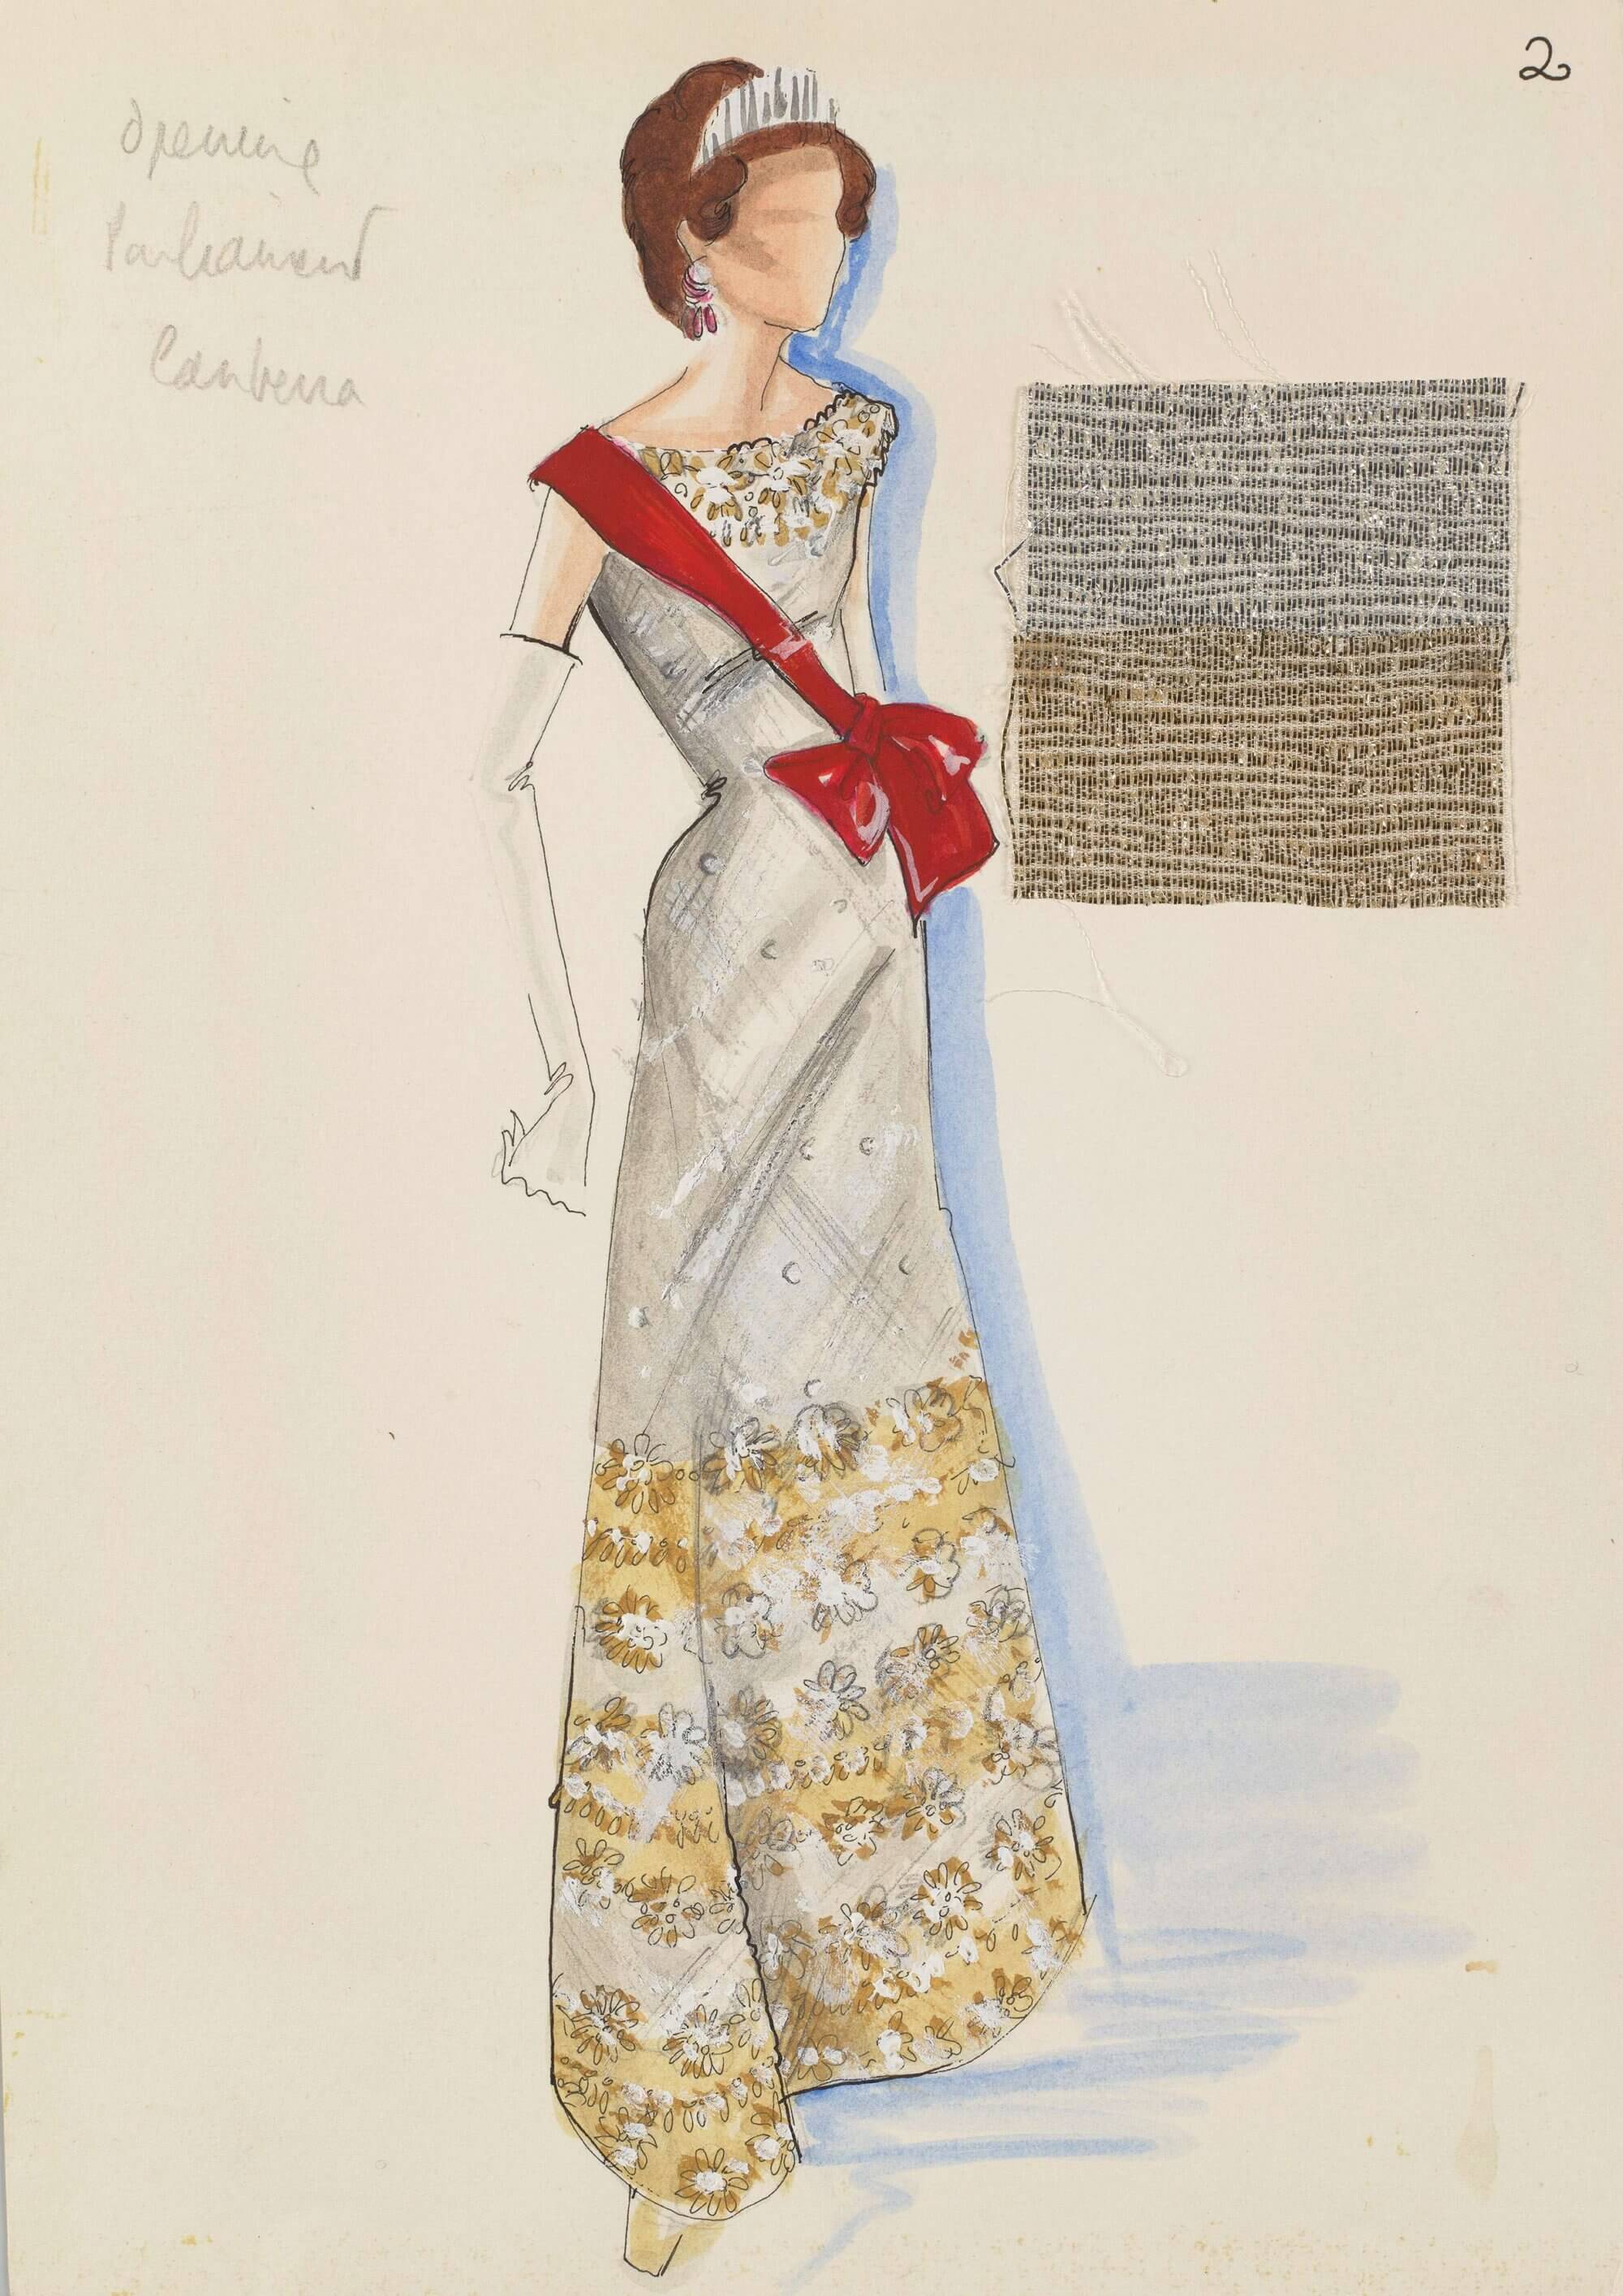 2
Opening
Parliament
Canberra